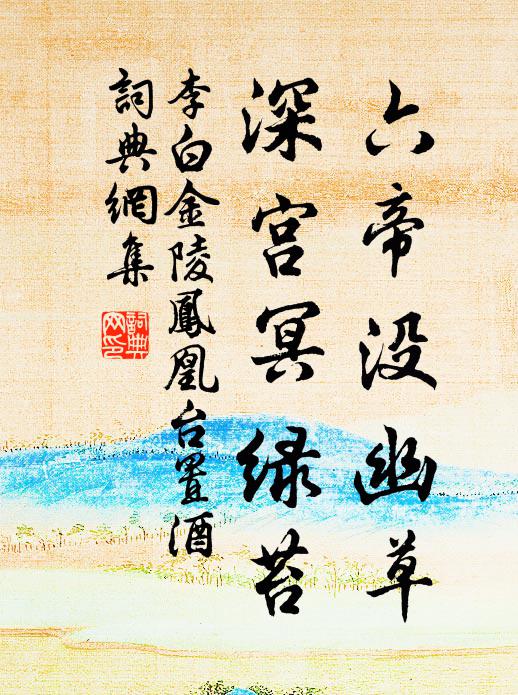 六帝没幽草
深宫冥绿苔
李白金陵鳳凰台置酒
詞典網集
詞典网印